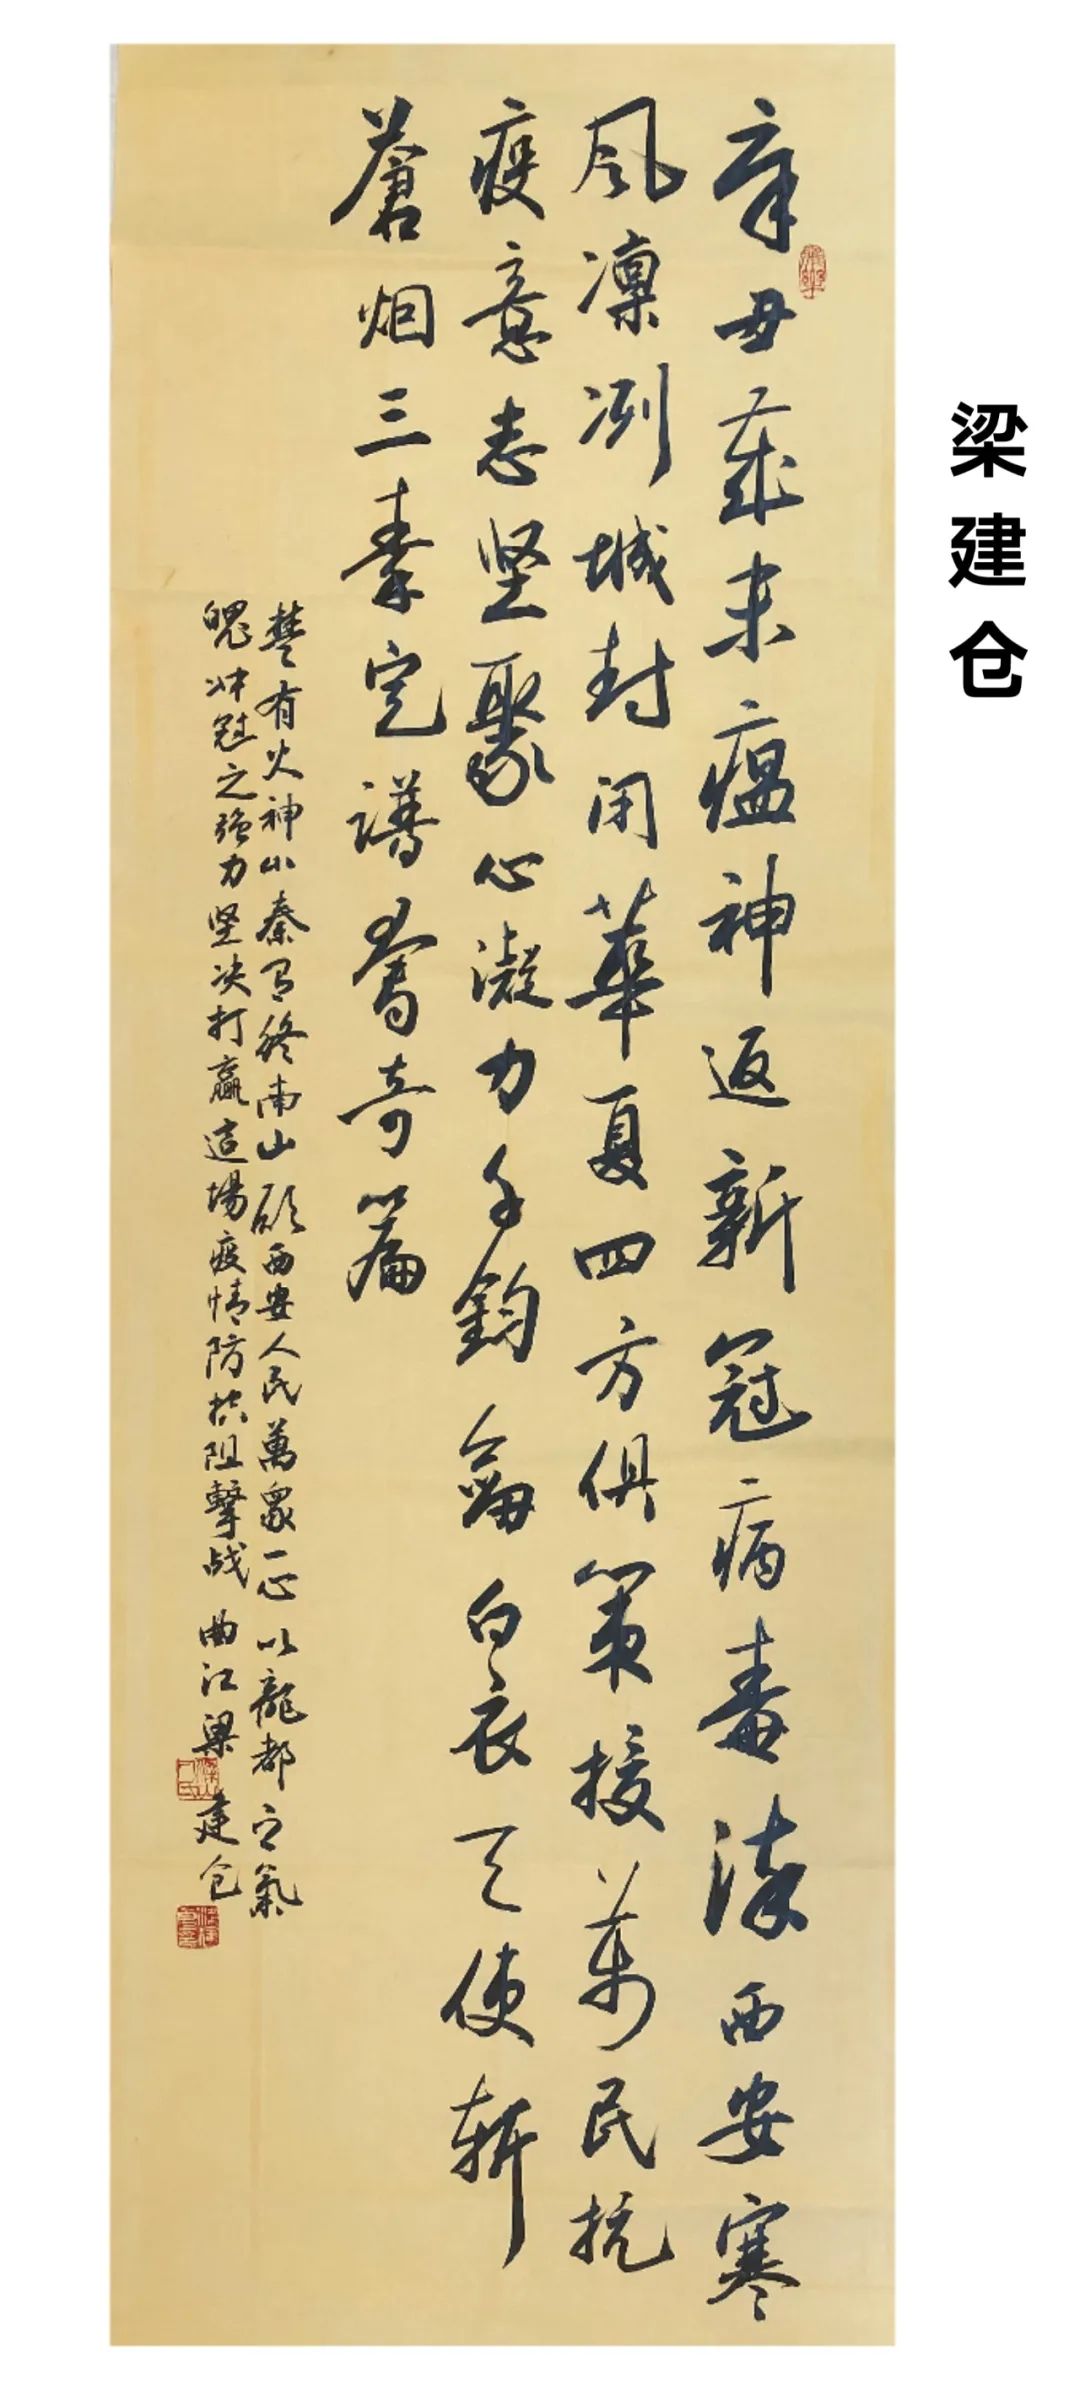 辛丑歲末瘟神返新冠病毒染西安寒
风凜冽城封闭華夏四方俱策援萬民抗
疫意志坚聚心凝力千鈞龠白衣天使斩
蒼烟三秦定谱奮奇篇
楚有火神山秦有终南山願西安人民萬眾一心以龍都之氣
魄冲冠之强力坚决打赢這場疫情防控阻擊战 曲江梁建仓
梁建仓